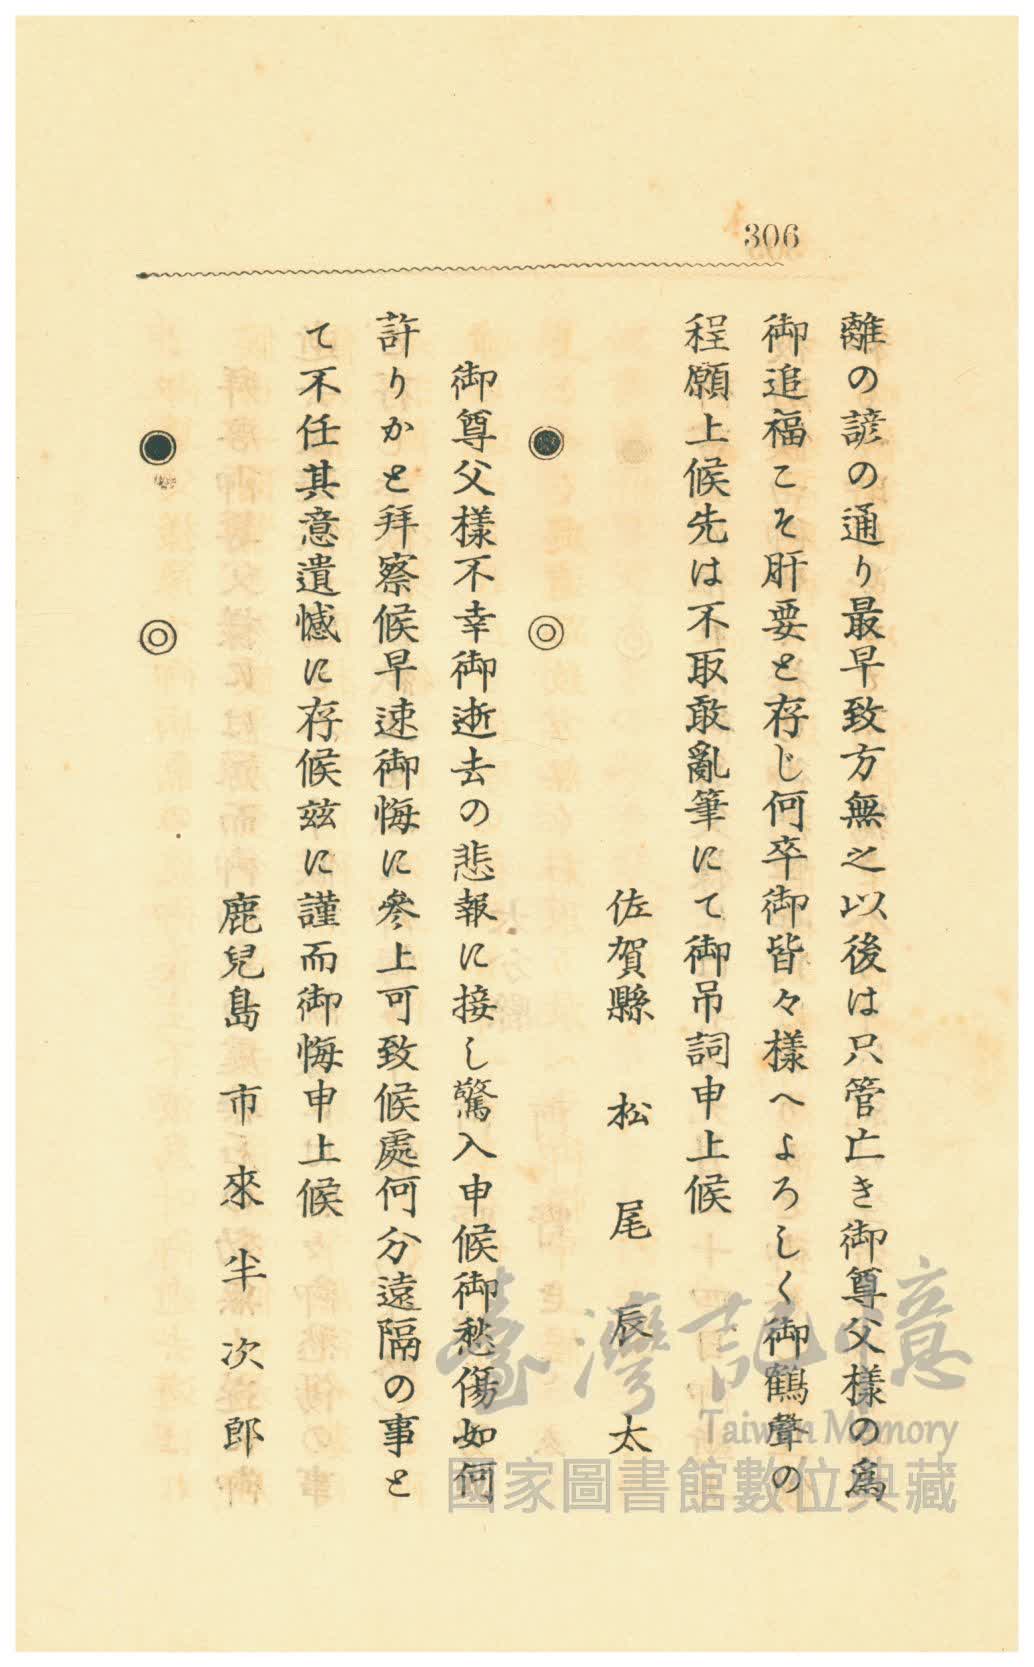 306
離の諺の通り最早致方無之以後は只管亡き御尊父樣の爲
御追福こそ肝要と存じ何卒御皆々樣へよろしく御鶴聲の
程願上候先は不取敢亂筆にて御吊詞申上候
佐賀縣 松尾辰太
御尊父樣不幸御逝去の悲報に接し驚入申候御愁傷如何
許りかと拜察候早速御悔に參上可致候處何分遠隔の事と
て不任其意遺憾に存候玆に謹而御悔申上候
鹿兒島市 來半次郎
臺灣記憶
Taiwan Memory
國家圖書館數位典藏